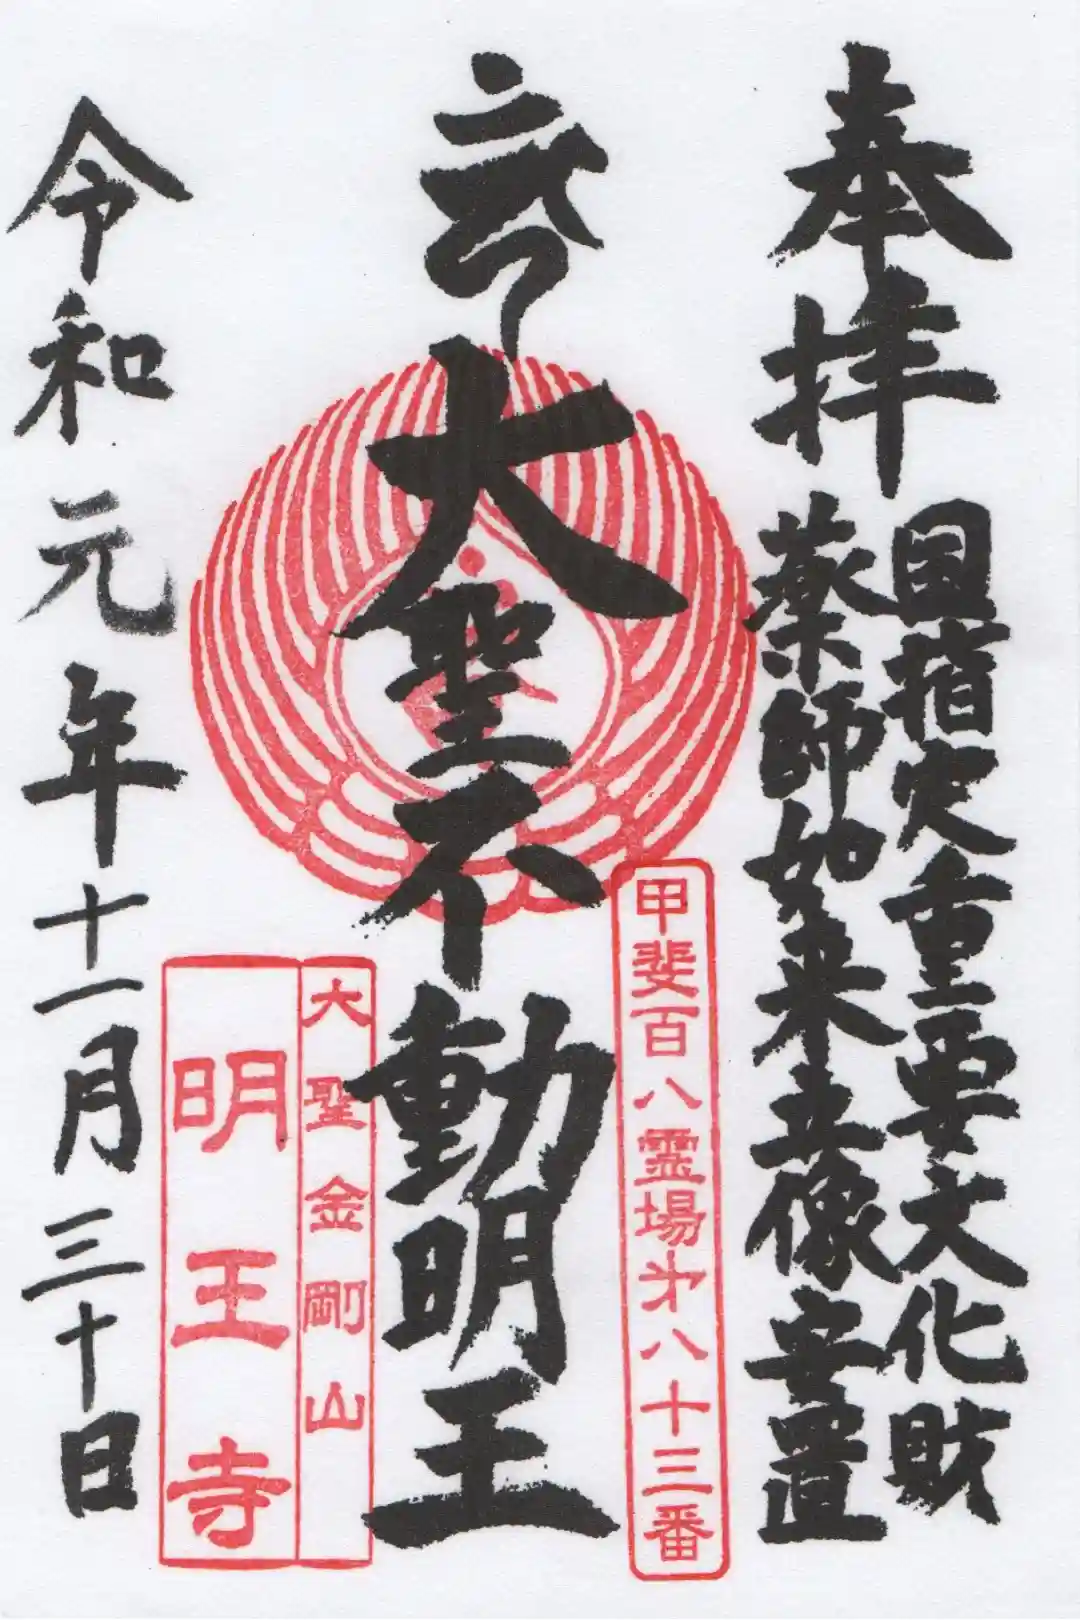 奉拝
国指定重要文化財
薬師如来立像安置
甲斐百八霊場第八十三番
大聖不動明王
大聖金剛山
明王寺
令和元年十一月三十日